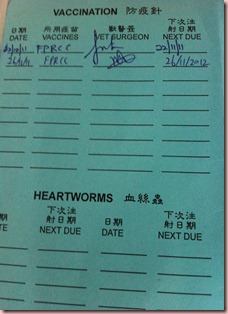 VACCINATION 防疫針
下次注
日期 所用疫苗 獸醫簽 射日期
DATE VACCINES VET SURGEON NEXT DUE
FPRCC 22/11/11
FPRCC 26/11/2012
HEARTWORMS 血絲蟲
下次注 下次注
期 射日期 日期 射日期
TE NEXT DUE DATE NEXT DUE